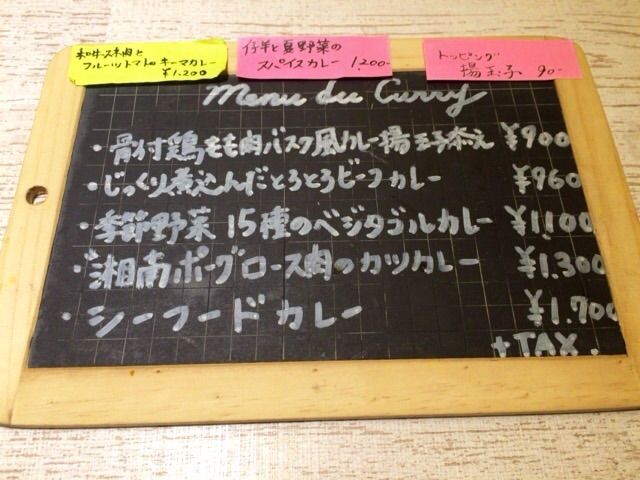 和牛スネ肉と
フルーツトマトのキーマカレー
¥1.200
仔羊と夏野菜の
スパイスカレー 1,200-
トッピング
揚玉子 90-
Menu du Curry
・骨付鶏もも肉バスク風カレー揚玉子添え ¥900
・じっくり煮込んだとろとろビーフカレー ¥960
・季節野菜15種のベジタブルカレー ¥1100
・湘南ポークロース肉のカツカレー ¥1.300
・シーフードカレー ¥1.700
+TAX.